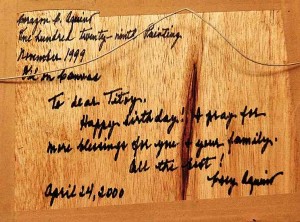 Corazon C. Aquino
One hundred twenty-ninth Painting
November 1999
Oil on Canvas
To dear Titoy,
Happy birthday! I pray for
more blessings for you & your family.
All the best!
Cory Aquino
April 24, 2000